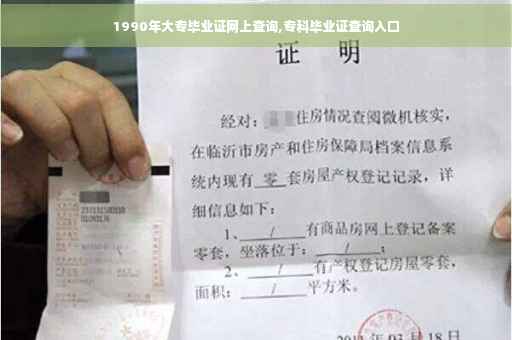 1990年大专毕业证网上查询,专科毕业证查询入口
证 明
经对: 住房情况查阅微机核实,
在临沂市房产和住房保障局档案信息系
统内现有 零 套房屋产权登记记录,详
细信息如下:
1、 / 有商品房网上登记备案
零套,坐落位于: / ;
2、 / 有产权登记房屋零套,
面积: / 平方米。
03月18日